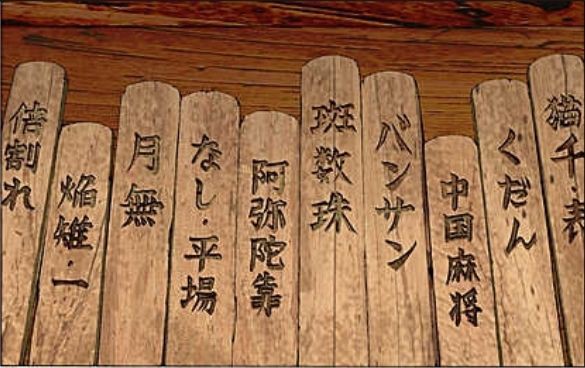 猫千・表
くだん
中国麻将
バンサン
斑数珠
阿弥陀靠
なし・平場
月無
焔雉・一
倍割れ